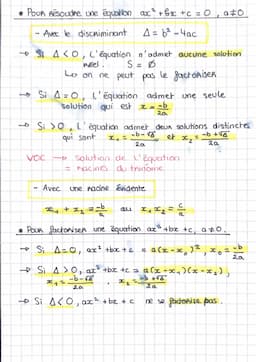 • Pour résoudre une équation ax² + bx + c = 0, a ≠ 0
- Avec le discriminant Δ = b² - 4ac
→ Si Δ < 0, l'équation n'admet aucune solution
réel. S = Ø
↳ on ne peut pas le factoriser
→ Si Δ = 0, l'équation admet une seule
solution qui est x = -b/2a
→ Si > 0, l'équation admet deux solutions distinctes
qui sont x₁ = -b-√Δ/2a et x₂ = -b+√Δ/2a
VOC → Solution de l'équation
= racines du trinôme
- Avec une racine évidente
x₁ + x₂ = -b/a ou x₁x₂ = c/a
• Pour factoriser une équation ax² + bx + c, a ≠ 0.
→ Si Δ = 0, ax² + bx + c = a(x - x₀)², x₀ = -b/2a
→ Si Δ > 0, ax² + bx + c = a(x - x₁)(x - x₂),
x₁ = -b-√Δ/2a, x₂ = -b+√Δ/2a
→ Si Δ < 0, ax² + bx + c ne se factorise pas.